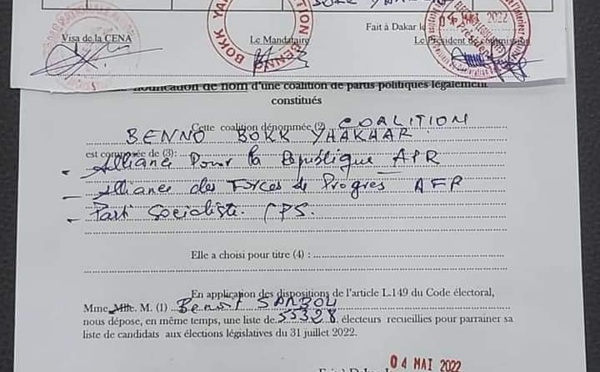 BOKK YAKAAR
Fait à Dakar le
04 MAI 2022
Visa de la CENA
BOKK YA
ITION BENNO
Le Mandataire
Le Président de
notification de nom d'une coalition de partis politiques légalement
constitués
Cette coalition dénommée (2) COALITION
BENNO BOKK YHAKHAR
est composée de (3):
- Alliance Pour la République APR
- Alliance des Forces de Progrès AFP
- Parti Socialiste (PS.
Elle a choisi pour titre (4) :
En application des dispositions de l'article L.149 du Code électoral,
Mme, Mlle. M. (1) Benoît SAMBOU
nous dépose, en même temps, une liste de 55328 électeurs recueillies pour parrainer sa
liste de candidats aux élections législatives du 31 juillet 2022.
04 MAI 2022